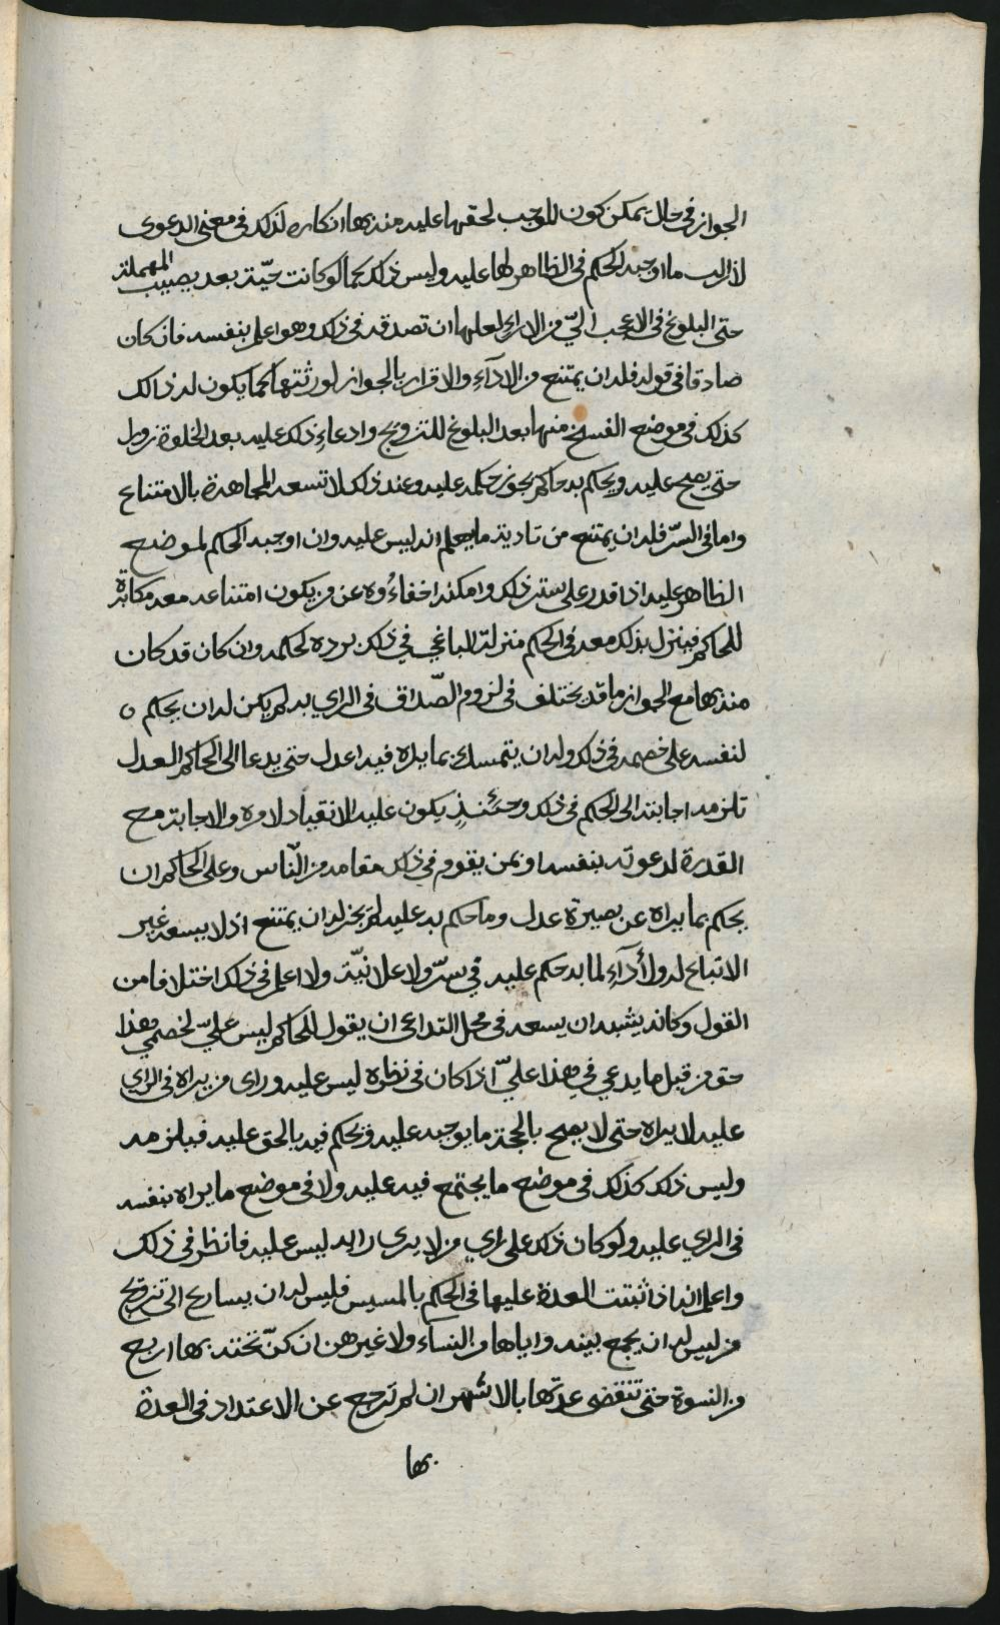 الجواز في حال يمكن كون الموجب لحقها عليه منه بها انكاره لذلك في معنى الدعوى
لازالت ما اوجبه الحكم في الظاهر لها عليه وليس ذلك بحما لو كانت حيّة بعد المهملة
حتى البلوغ في الاعجب اليّ من الاراء لعلها ان تصدقه في ذلك وهو اعلم بنفسه فان كان
صادقا في قوله فله ان يمتنع من الادآء والاقرار بالجواز لورثتها كما يكون له ذالك
كذلك في موضع الفسخ منها بعد البلوغ للتزويج وادعاء ذلك عليه بعد الخلوة
حتى يصح عليه ويحكم به حاكم يجوز حكمه عليه وعند ذلك لا تسعه المجاهدة بالامتناع
واما في السرّ فله ان يمتنع من تادية ما يعلم انه ليس عليه وان اوجبه الحاكم لموضع
الظاهر عليه اذا قدر على ستر ذلك وامكنه اخفاءُوه عن من يكون امتناعه معه مكابرة
للحاكم فينزل بذلك معه في الحكم منزلة الباغي في ذلك برده لحكمه وان كان قد كان
منه بها مع الجواز ما قد يختلف في لزوم الصّداق في الراي به لم يكن له ان يحكم ه
لنفسه على خصمه في ذلك وله ان يتمسك بما يراه فيه اعدل حتى يدعا الى الحاكم العدل
تلزمه اجابته الى الحكم في ذلك وحئنذٍ يكون عليه الانقياد لامره والاجابة مع
القدرة لدعوته بنفسه او بمن يقوم في ذلك مقامه من النّاس وعلى الحاكم ان
يحكم بما يراه عن بصيرة عدل وما حكم به عليه لم يجز له ان يمتنع اذ لا يسعه غير
الاتباع له ولأدآء لما به حكم عليه في سرّ ولا علانيّة ولا اعلم في ذلك اختلافا من
القول وكانه يشبه ان يسعه في محل التداعي ان يقول للحاكم ليس عليّ لخصمي هذا
حق من قبل ما يدعي في هذا عليّ اذا كان في نظره ليس عليه وراى من يراه في الراي
عليه لا يراه حتى لا يصح بالحجة ما يوجبه عليه ويحكم فيه بالحق عليه فيلزمه
وليس ذلك كذلك في موضع ما يجتمع فيه عليه ولا في موضع ما يراه بنفسه
في الراي عليه ولو كان ذلك على راي من لا يرى رايه ليس عليه فانظر في ذلك
واعلم انه اذا ثبتت العدة عليها في الحكم بالمسيس فليس له ان يسارع الى تزويج
من ليس له ان يجمع بينه واياها من النساء ولا غيرهن ان كنّ تحته بها اربع
من النسوة حتى تنقضي عدتها بالاشهر ان لم ترجع عن الاعتداد في العدة
بها